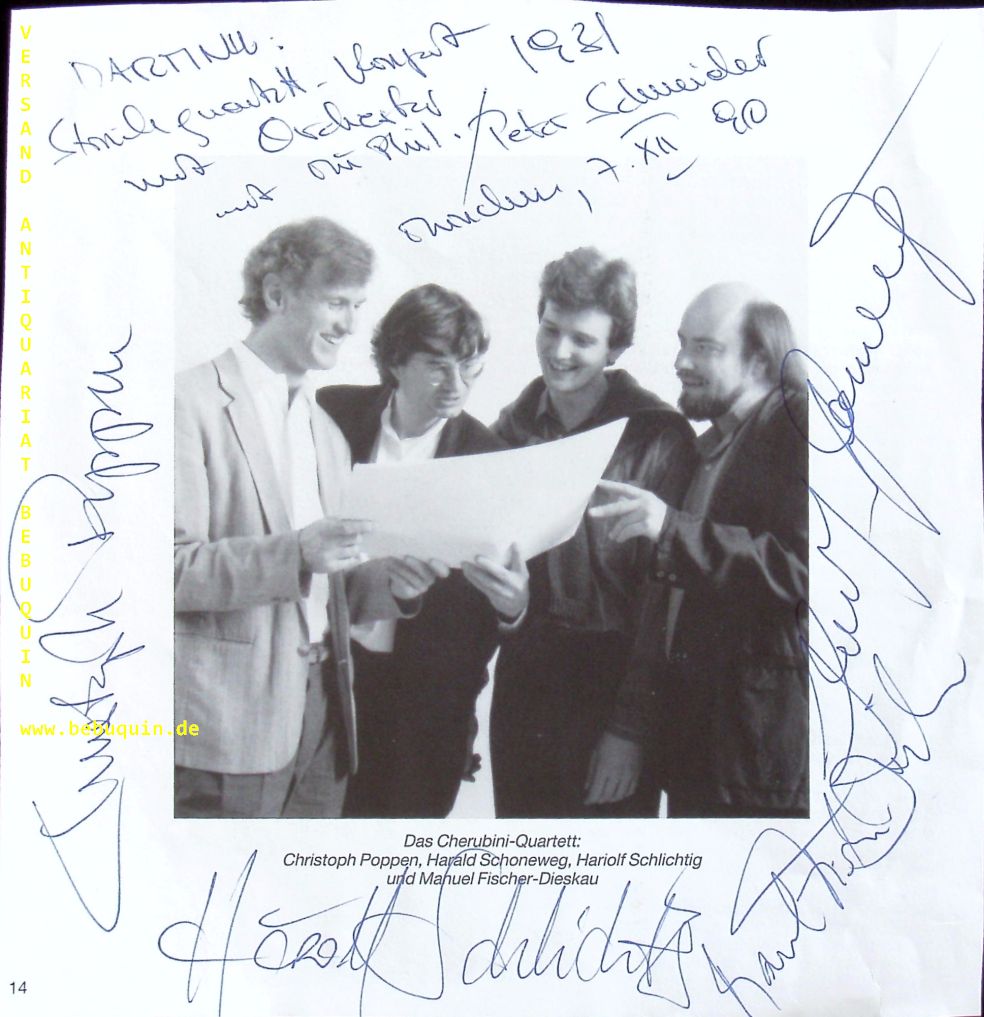 MARTINU:
Streichquartett-Konzert 1931
mit Orchester
mit Mü Phil. / Peter Schneider
München, 7. XII 90
VERSAND ANTIQUARIAT BEBUQUIN
www.bebuquin.de
Christoph Poppen
Harald Schoneweg
Das Cherubini-Quartett:
Christoph Poppen, Harald Schoneweg, Hariolf Schlichtig
und Manuel Fischer-Dieskau
Hariolf Schlichtig
Manuel Fischer-Dieskau
14